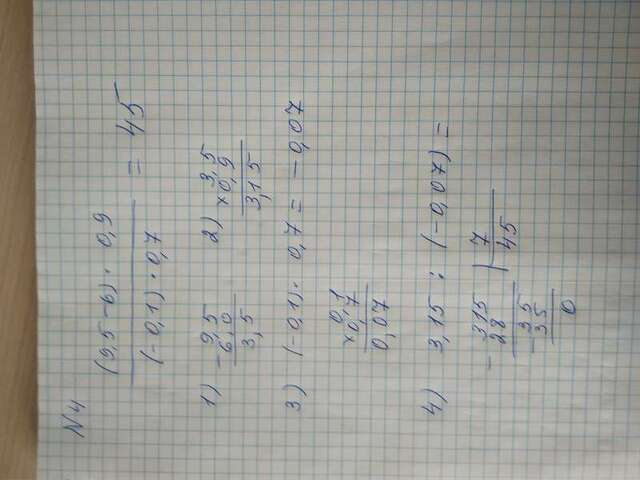 N4
(9,5-6)·0,9
(-0,1)·0,7
= 45
1) - 9,5
6,0
3,5
2) 3,5
×0,9
3,15
3) (-0,1)·0,7 = -0,07
0,1
×0,7
0,07
4) 3,15 : (-0,07) =
- 315 | 7
28 45
- 35
35
0